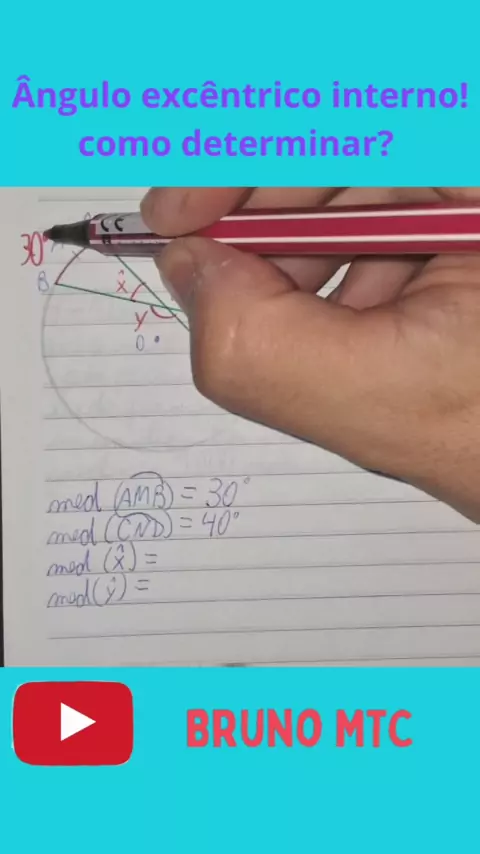 Ângulo excêntrico interno!
como determinar?
30°
B
x̂
y
O
med (AMB) = 30°
med (CND) = 40°
med (x̂) =
med(ŷ) =
BRUNO MTC